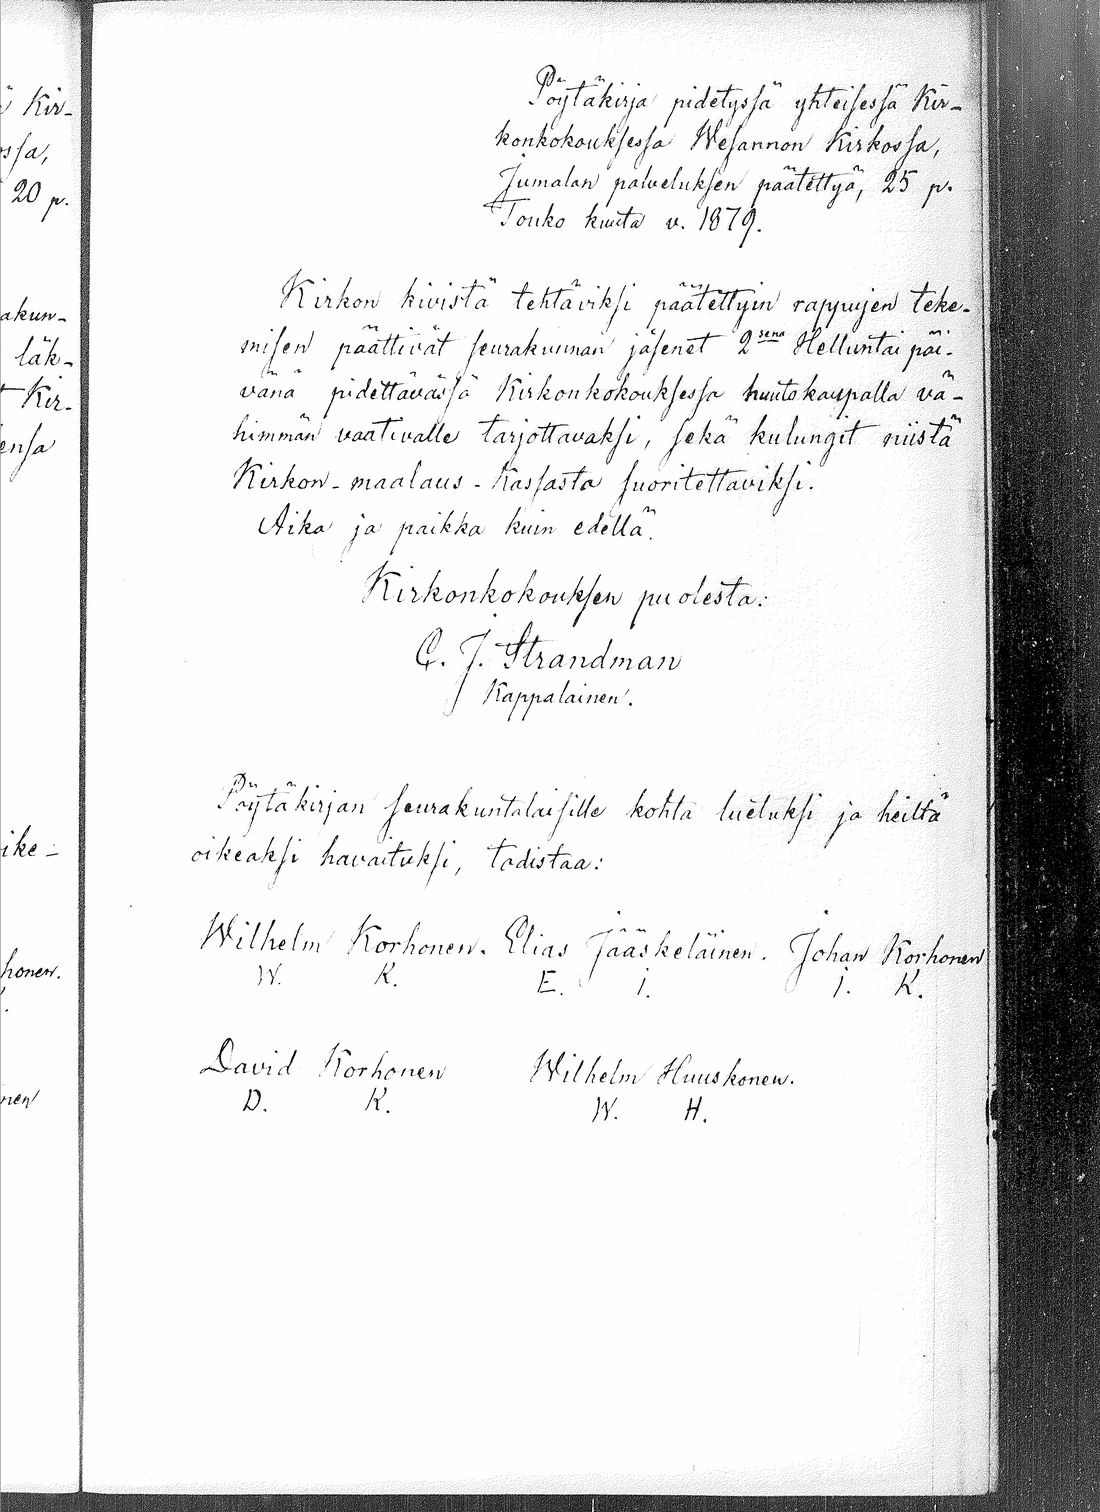 ä Kir-
ossa,
20 p.
akun-
läk-
t Kir-
ensa
ike-
honen.
nen
Pöytäkirja pidetyssä yhteisessä Kir-
konkokouksessa Wesannon Kirkossa,
Jumalan palveluksen päätettyä, 25 p.
Touko kuuta v. 1879.
Kirkon kivistä tehtäviksi päätettyin rappujen teke-
misen päättivät seurakunnan jäsenet 2sena Helluntai päi-
vänä pidettävässä Kirkonkokouksessa huutokaupalla vä-
himmän vaativalle tarjottavaksi, sekä kulungit niistä
Kirkon-maalaus-Kassasta suoritettaviksi.
Aika ja paikka kuin edellä.
Kirkonkokouksen puolesta:
C. J. Strandman
Kappalainen.
Pöytäkirjan seurakuntalaisille kohta luetuksi ja heiltä
oikeaksi havaituksi, todistaa:
Wilhelm Korhonen. Elias Jääskeläinen. Johan Korhonen
W. K. E. I. I. K.
David Korhonen Wilhelm Huuskonen.
D. K. W. H.